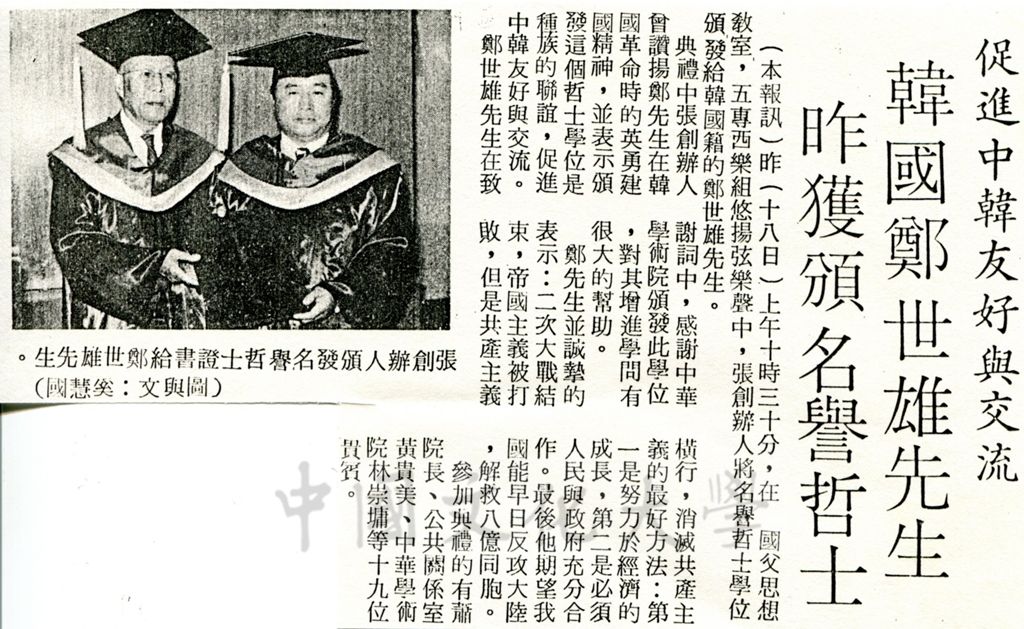 促進中韓友好與交流
韓國鄭世雄先生
昨獲頒名譽哲士
（本報訊）昨（十八日）上午十時三十分，在　國父思想
教室，五專西樂組悠揚弦樂聲中，張創辦人將名譽哲士學位
頒發給韓國籍的鄭世雄先生。
典禮中張創辦人
曾讚揚鄭先生在韓
國革命時的英勇建
國精神，並表示頒
發這個哲士學位是
種族的聯誼，促進
中韓友好與交流。
鄭世雄先生在致
謝詞中，感謝中華
學術院頒發此學位
，對其增進學問有
很大的幫助。
鄭先生並誠摯的
表示：二次大戰結
束，帝國主義被打
敗，但是共產主義
橫行，消滅共產主
義的最好方法：第
一是努力於經濟的
成長，第二是必須
人民與政府充分合
作。最後他期望我
國能早日反攻大陸
，解救八億同胞。
參加典禮的有蕭
院長、公共關係室
黃貴美、中華學術
院林崇墉等十九位
貴賓。
。生先雄世鄭給書證士哲譽名發頒人辦創張
（國慧奚：文與圖）
中國文化大學